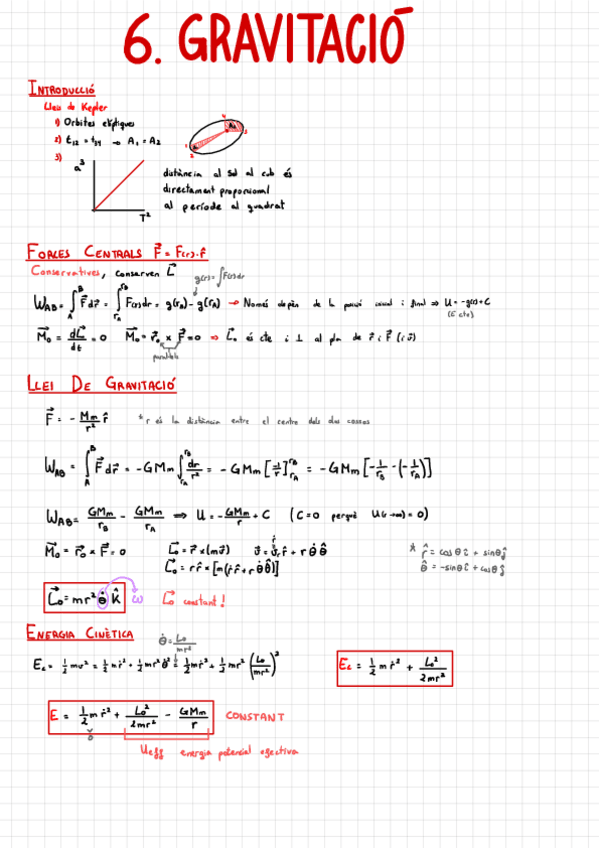 6. GRAVITACIÓ
INTRODUCCIÓ
Lleis de Kepler
1) Orbites el·líptiques
2) t₁₂ = t₃₄ → A₁ = A₂
3)
a³
T²
distància al Sol al cub és
directament proporcional
al període al quadrat
FORCES CENTRALS F⃗ = F(r)·r̂
Conservatives, conserven L⃗
g(r) = ∫F(r)dr
W_AB = ∫_A^B F⃗ dr⃗ = ∫_{r_A}^{r_B} F(r) dr = g(r_B) - g(r_A) → Només depèn de la posició inicial i final ⇒ U = -g(r) + C
(E cte)
M⃗₀ = dL⃗/dt = 0 M⃗₀ = r⃗₀ × F⃗ = 0 ⇒ L⃗₀ és cte i ⊥ al pla de r⃗ i F⃗ (i v⃗)
paral·lels
LLEI DE GRAVITACIÓ
F⃗ = - Mm/r² r̂ * r és la distància entre el centre dels dos cossos
W_AB = ∫_A^B F⃗ dr⃗ = -GMm ∫_{r_A}^{r_B} dr/r² = -GMm [-1/r]_{r_A}^{r_B} = -GMm [-1/r_B - (-1/r_A)]
W_AB = GMm/r_B - GMm/r_A ⇒ U = -GMm/r + C (C=0 perquè U(r→∞) = 0)
M⃗₀ = r⃗₀ × F = 0 L⃗₀ = r⃗ × (mv⃗) v⃗ = v⃗ᵣ r̂ + r θ̇ θ̂
ṙ
L⃗₀ = r r̂ × [m(ṙ r̂ + r θ̇ θ̂)]
* r̂ = cosθ î + sinθ ĵ
θ̂ = -sinθ î + cosθ ĵ
L⃗₀ = mr² θ̇ k̂ ω L⃗₀ constant!
ENERGIA CINÈTICA
θ̇ = L₀/mr²
E_c = 1/2 mv² = 1/2 mṙ² + 1/2 mr² θ̇² = 1/2 mṙ² + 1/2 mr² (L₀/mr²)²
E_c = 1/2 m ṙ² + L₀²/2mr²
E = 1/2 m ṙ² + L₀²/2mr² - GMm/r CONSTANT
U_eff energia potencial efectiva